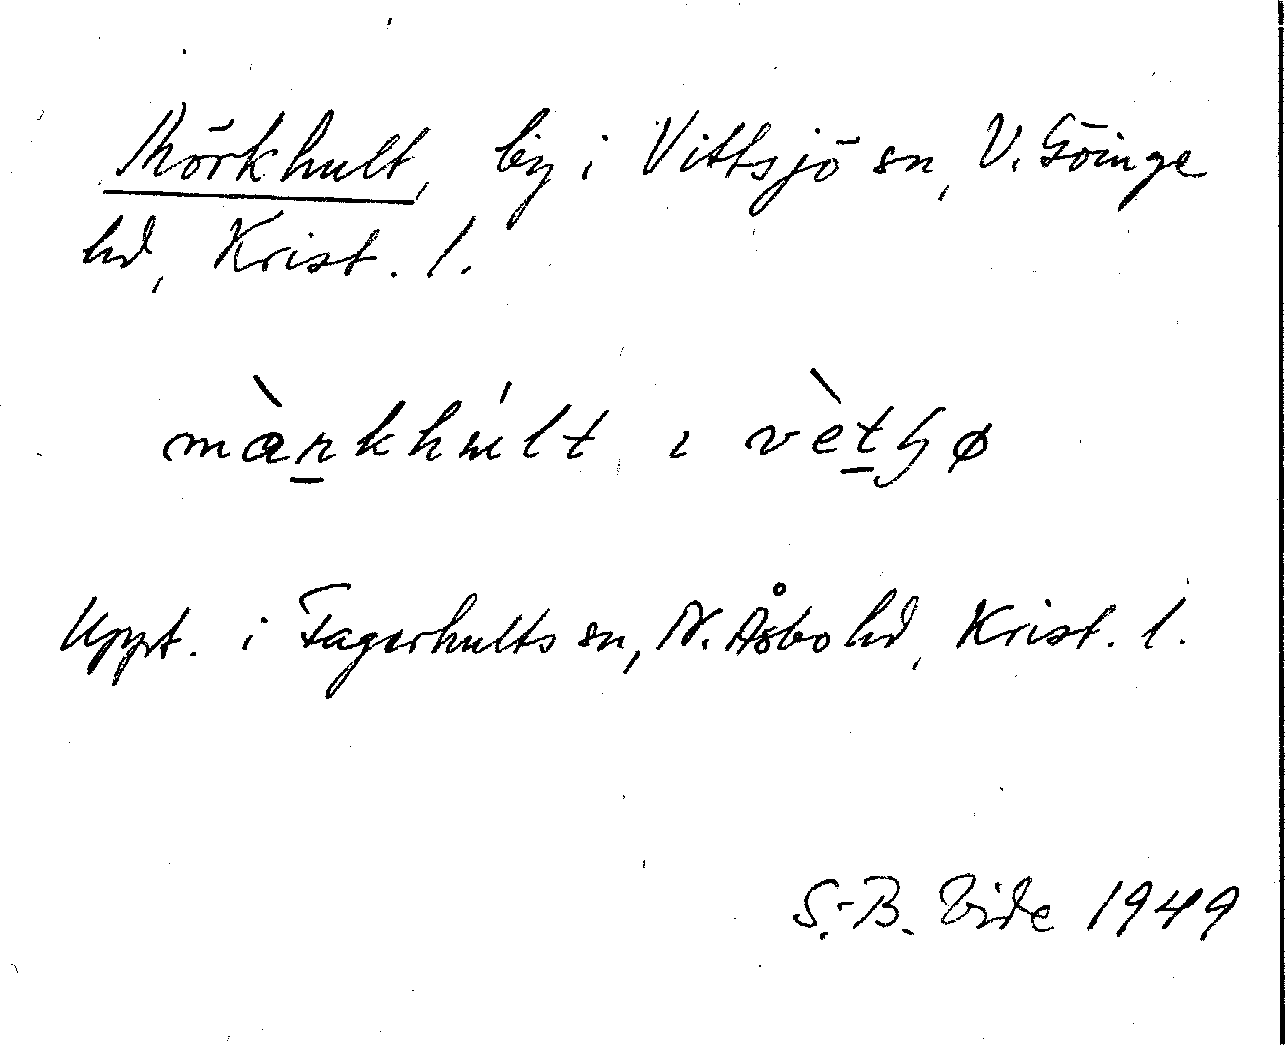 Mörkhult, by i Vittsjö sn, V. Göinge
hd, Krist. l.
mæ̀ṟkhúlt ı vèṯʂø
Uppt. i Fagerhults sn, N. Åsbo hd, Krist. l.
S.-B. Vide 1949